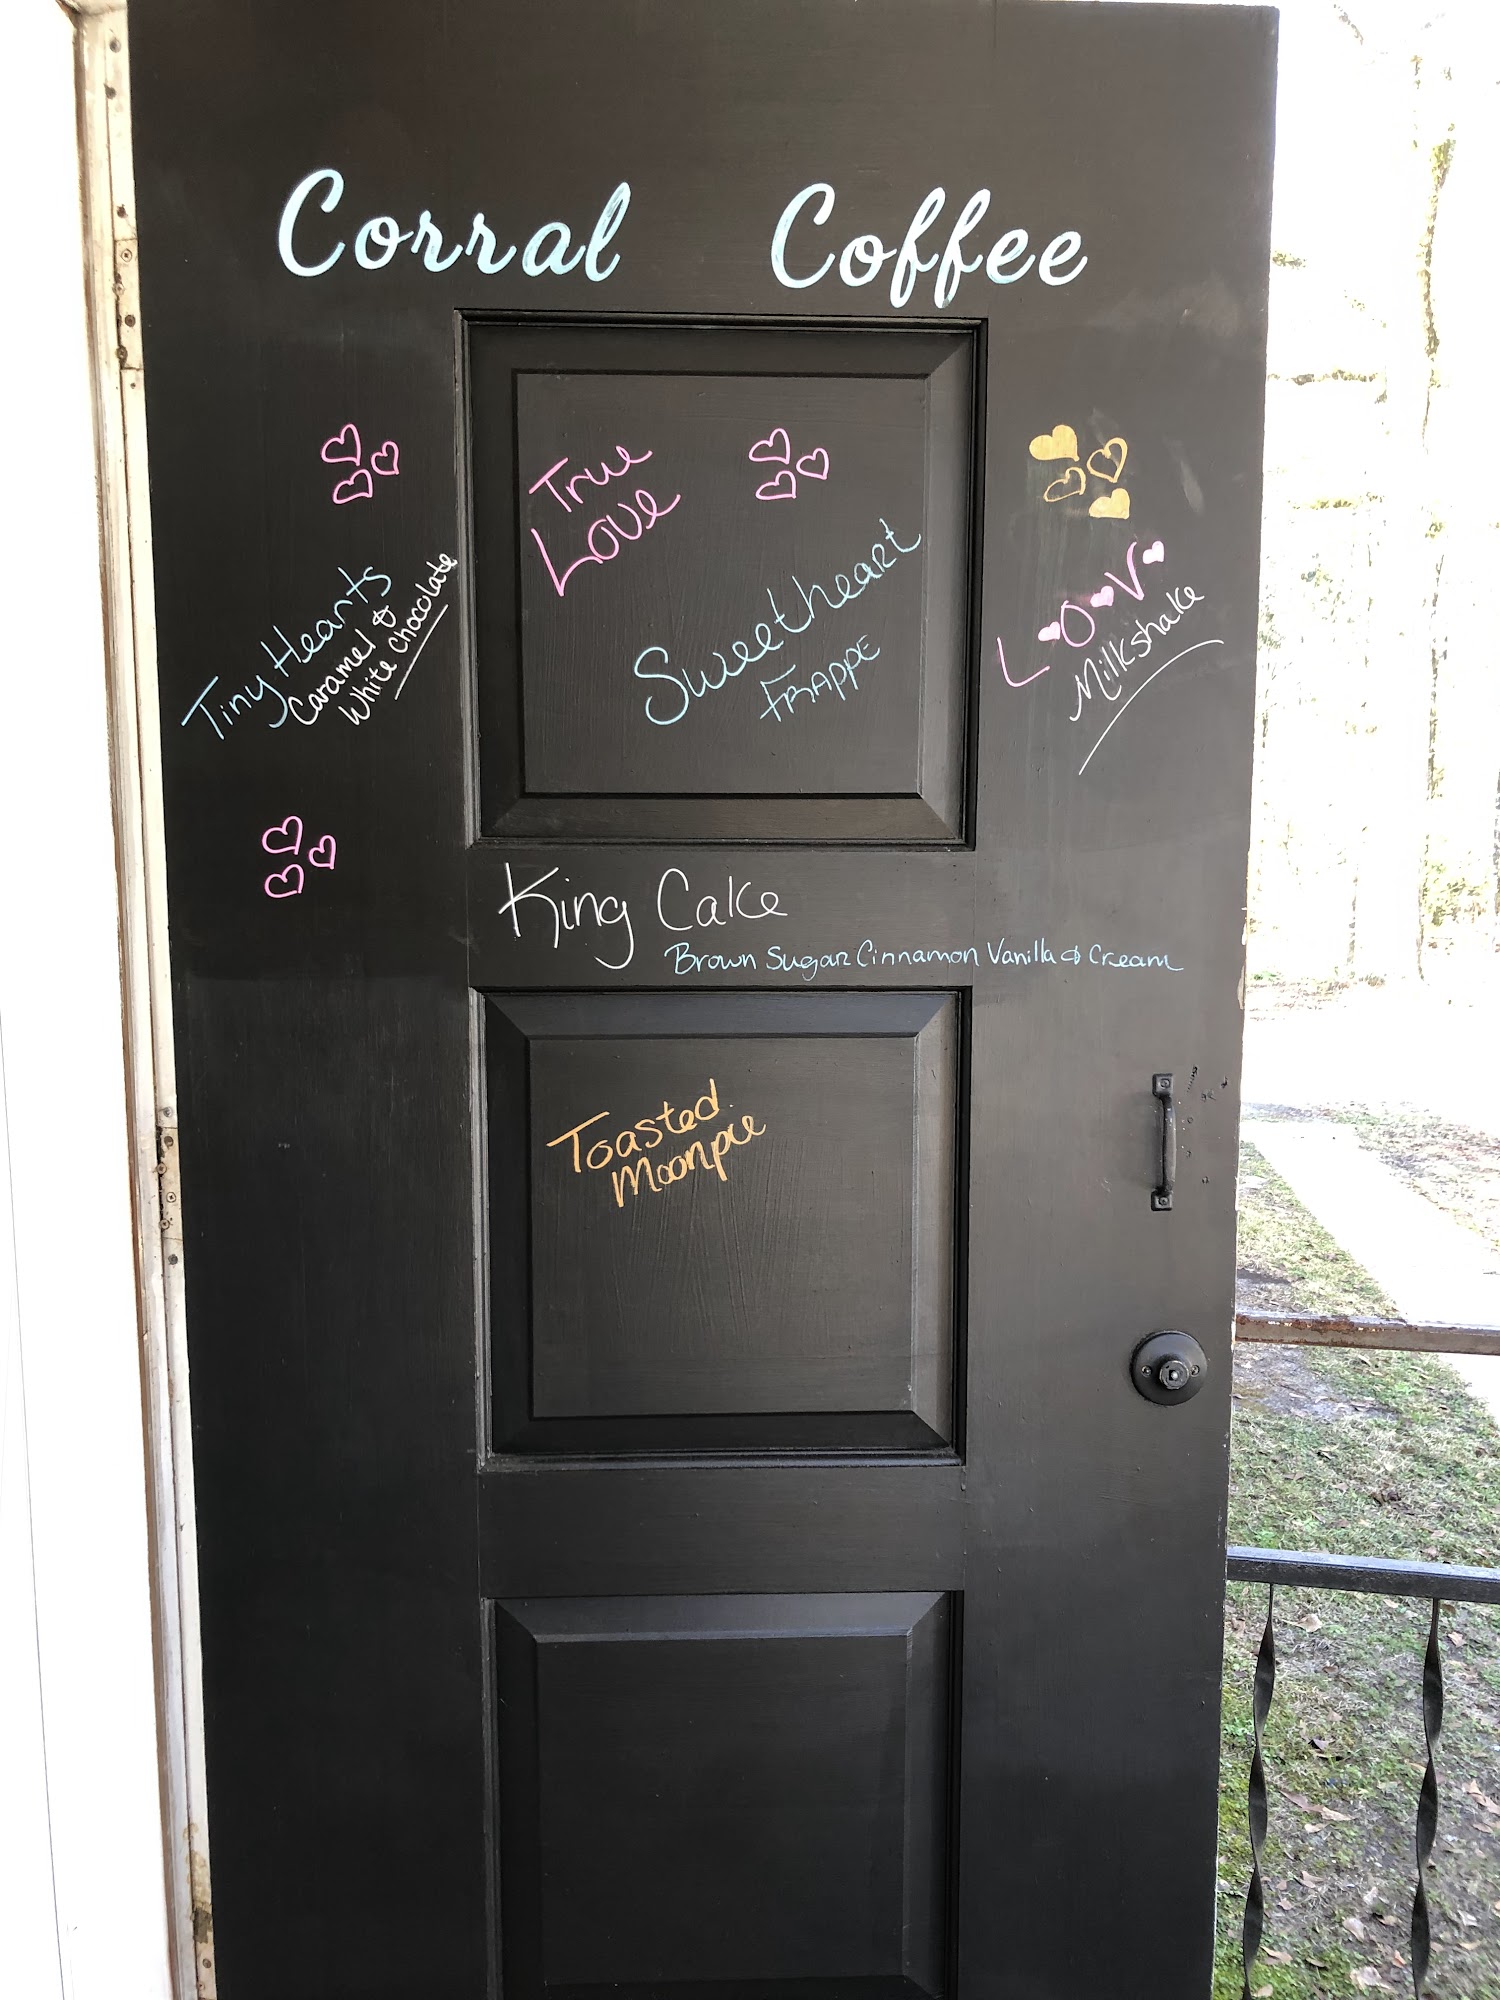 Corral Coffee
Tiny Hearts
Caramel &
White Chocolate
True
Love
Sweetheart
FRAPPE
L•O•V•
Milkshake
King Cake
Brown Sugar Cinnamon Vanilla & Cream
Toasted
Moonpie